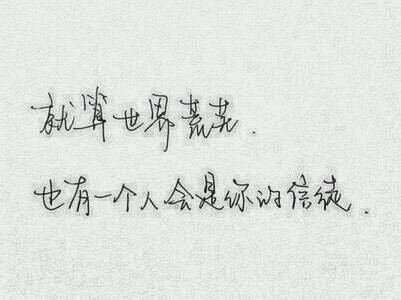 就算世界荒芜.
也有一个人会是你的信徒.